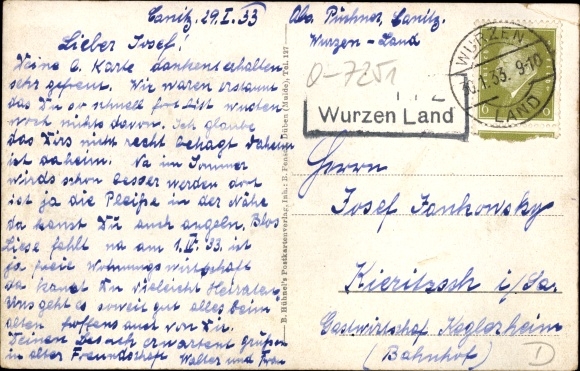 Canitz, 29.I.33
Lieber Josef!
Deine l. Karte dankent erhalten
sehr gefreut. Wir waren erstaunt
das Du so schnell fort bist wusten
noch nichts davon. Ich glaube
das Dirs nicht recht behagt daheim
ist daheim. Na im Sommer
wirds schon besser werden dort
ist ja die Pleiße in der Nähe
da kanst Du auch angeln. Blos
Liese fehlt na am 1.IV.33. ist
ja freie Wohnungswirtschaft
da kanst Du vieleicht Heiraten.
Uns geht es soweit gut alles beim
alten hoffens auch von Dir.
Deinen Besuch erwartent grüßen
in alter Freundschaft Walter und Frau
B. Hühnel's Postkartenverlag, Inh.: R. Düben (Mulde), Tel. 127
Abs. Püschner, Canitz.
Wurzen-Land
O-7251
Wurzen Land
WURZEN
30.1.33. 9-10
LAND
Herrn
Josef Jankowsky
Kieritzsch i/Sa.
Gastwirtschaf Keglerheim
(Bahnhof)
D